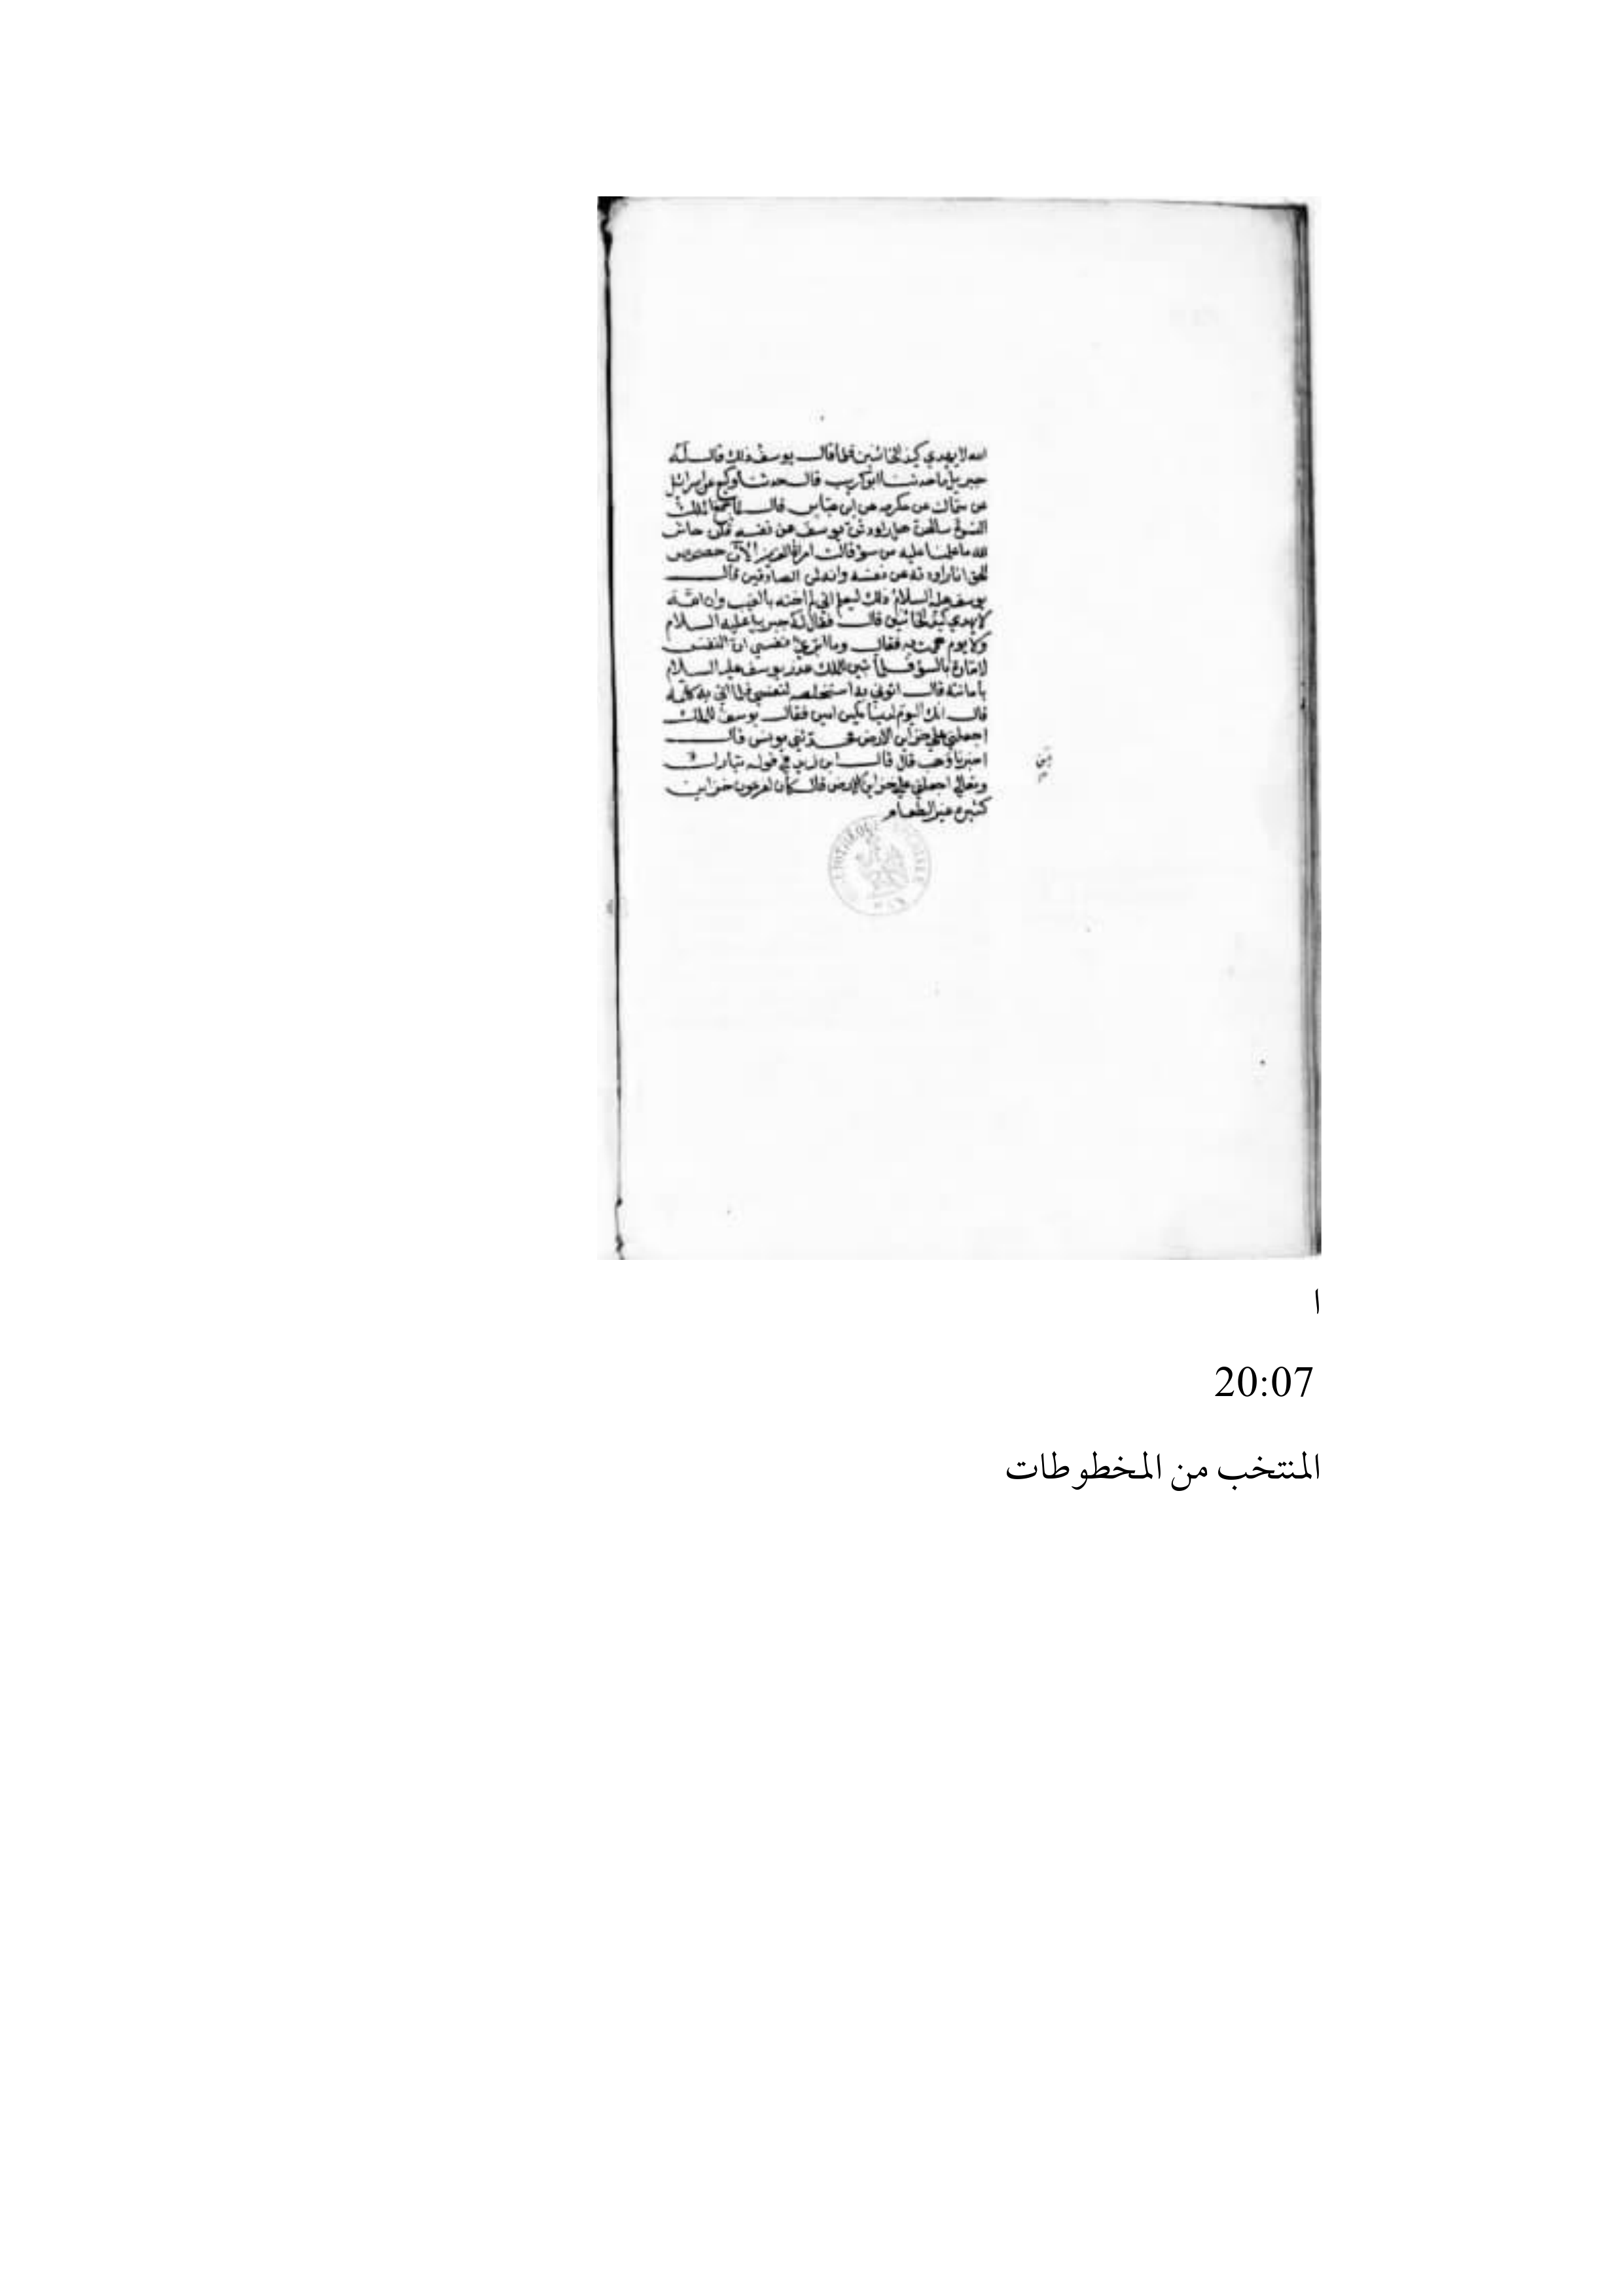 الله لا يهدي كيد الخائنين فلما قال يوسف ذلك قال له
جبريل ما حدثنا ابو كريب قال حدثنا وكيع عن اسرائيل
عن سماك عن عكرمه عن ابن عباس قال لما جمع الملك
النسوة سالهن هل راودتن يوسف عن نفسه قلن حاش
لله ما علمنا عليه من سوء قالت امراة العزيز الآن حصحص
الحق انا راودته عن نفسه وانه لمن الصادقين قال
يوسف عليه السلام ذلك ليعلم اني لم اخنه بالغيب وان الله
لا يهدي كيد الخائنين قال فقال له جبريل عليه السلام
ولا يوم هممت به فقال وما ابرئ نفسي ان النفس
لامارة بالسوء فلما تبين للملك عذر يوسف عليه السلام
بأمانته قال ائتوني به استخلصه لنفسي فلما اتي به كلمه
قال انك اليوم لدينا مكين امين فقال يوسف للملك
اجعلني على خزاين الارض حدثني يونس قال
اخبرنا وهب قال قال ابن زيد في قوله تبارك
وتعالى اجعلني على خزاين الارض قال كان لفرعون خزاين
كثيره غير الطعام
ا
20:07
المنتخب من المخطوطات